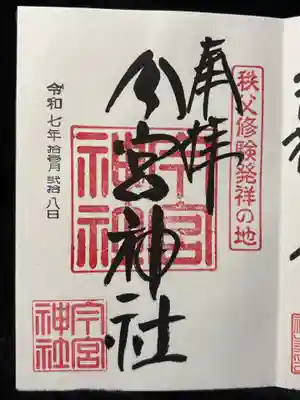 秩父修験発祥の地
奉拝
今宮神社
今宮
神社
令和七年拾壱月弐拾八日
今宮
神社